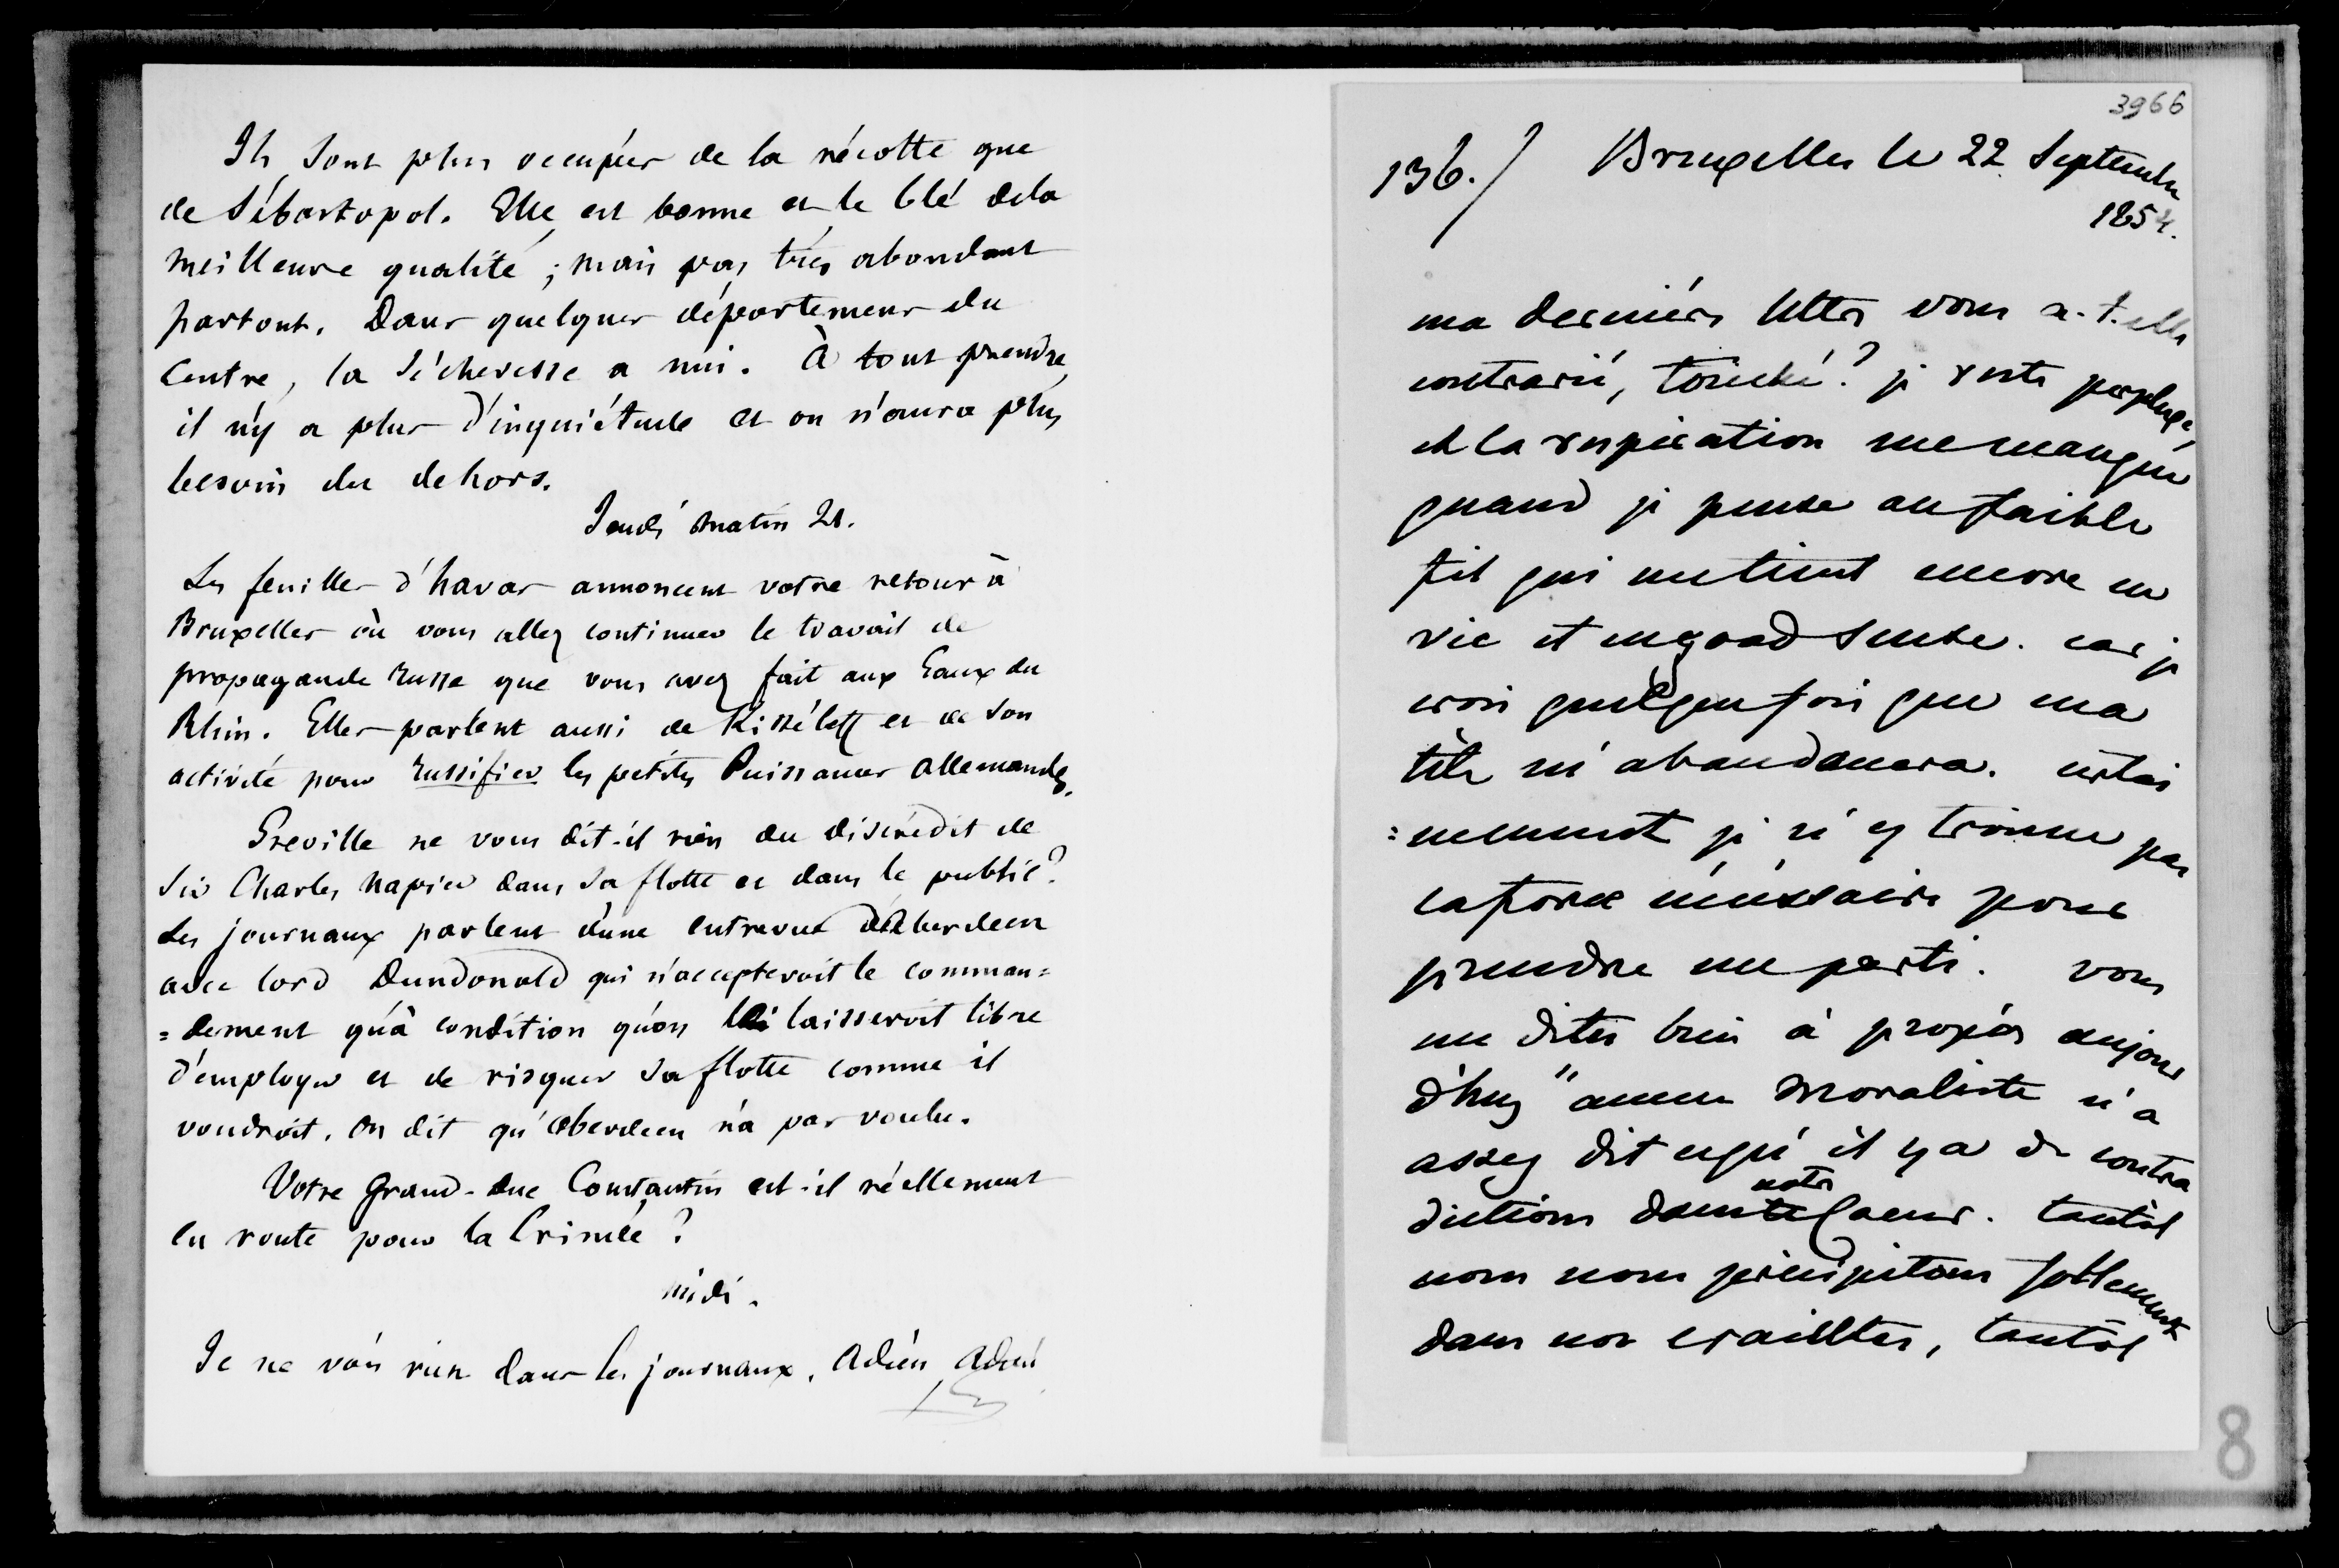 Ils sont plus occupés de la récolte que
de Sébastopol. Elle est bonne et le blé dela
meilleure qualité ; mais pas très abondant
partout. Dans quelques départemens du
Centre, la sécheresse a nui. À tout prendre,
il n'y a plus d'inquiétude et on n'aura plus
besoin du dehors.
Jeudi matin 21.
Les feuilles d'havas annoncent votre retour à
Bruxelles où vous allez continuer le travail de
propagande russe que vous avez fait aux Eaux du
Rhin. Elles parlent aussi de Kisséleff et de son
activité pour russifier les petites Puissances allemandes.
Greville ne vous dit-il rien du discrédit de
Sir Charles Napier dans sa flotte et dans le public ?
Les journaux parlent d'une entrevue d'Aberdeen
avec lord Dundonald qui n'accepteroit le comman=
=dement qu'à condition qu'on lui laisseroit libre
d'employer et de risquer sa flotte comme il
voudroit. On dit qu'Aberdeen n'a pas voulu.
Votre Grand-Duc Constantin est-il réellement
en route pour la Crimée ?
Midi.
Je ne vois rien dans les journaux. Adieu, Adieu
3966
136./ Bruxelles le 22 Septembre
1854.
ma dernière lettre vous a-t-elle
contrarié, touché ? je reste perplexe,
et la respiration me manque
quand je pense au faible
fil qui me tient encore en
vie et en good sense. car je
crois quelques fois que ma
tête m'abandonnera. certai
=nement je n'y trouve pas
la force nécessaire pour
prendre un parti. vous
me dites bien à propos aujour
d'huy "aucun moraliste n'a
assez dit ce qu'il y a de contra
dictions dans le coeur. tantôt
notre
nous nous précipitons follement
dans nos craintes, tantôt
8